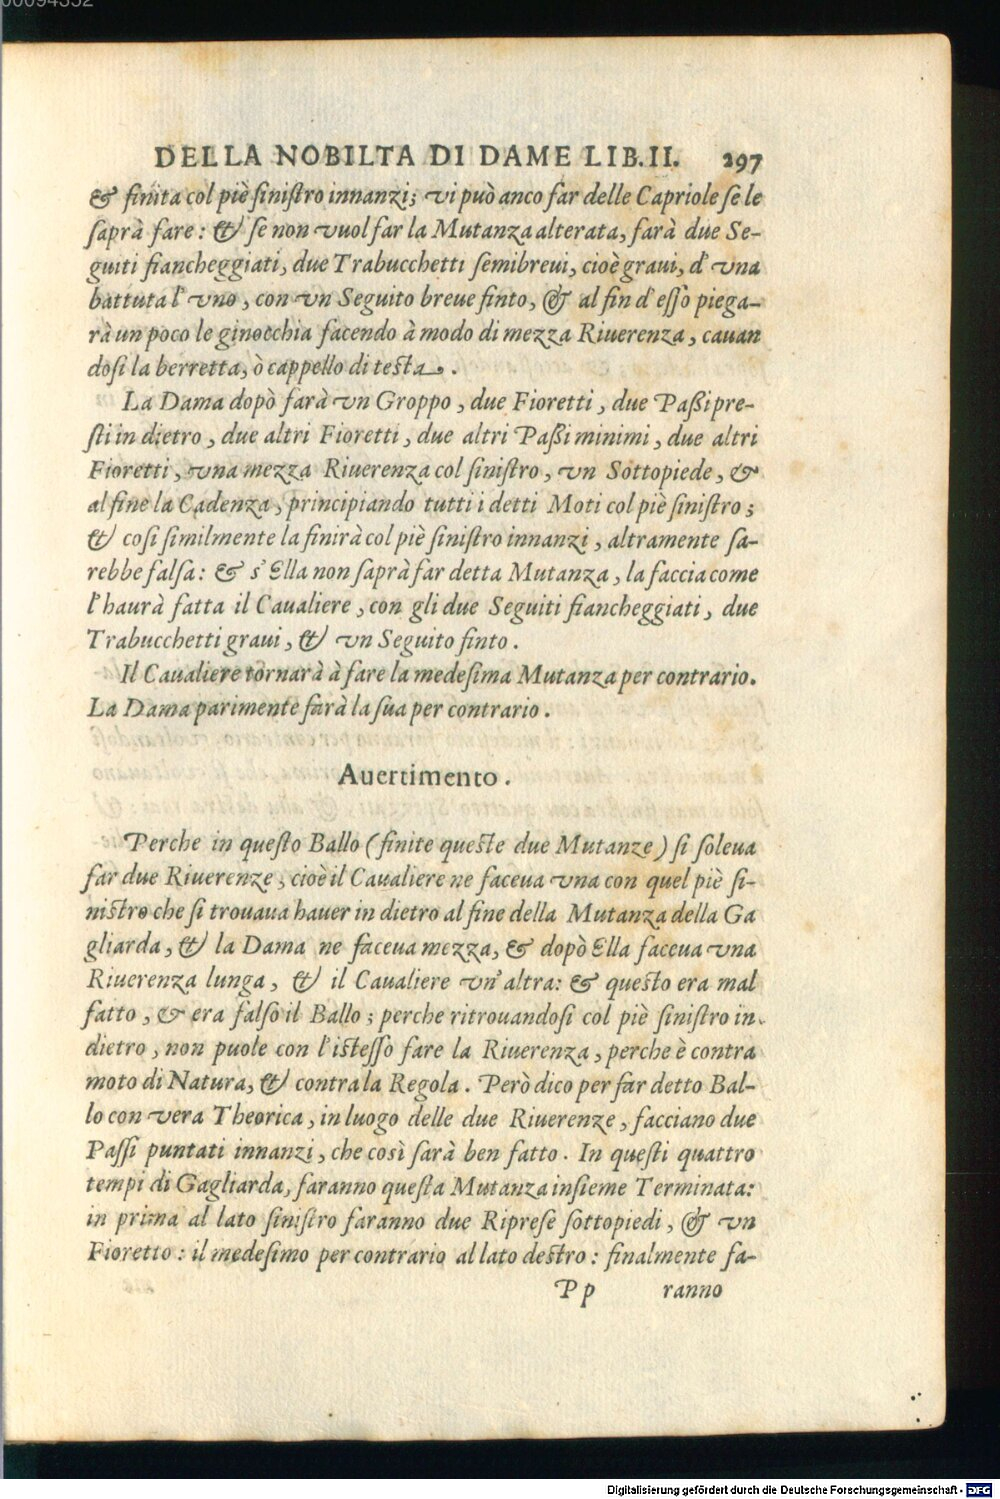 00694352
DELLA NOBILTA DI DAME LIB.II. 297
& finita col piè sinistro innanzi; vi può anco far delle Capriole se le
saprà fare: & se non vuol far la Mutanza alterata, farà due Se-
guiti fiancheggiati, due Trabucchetti semibreui, cioè graui, d'vna
battuta l'vno, con vn Seguito breue finto, & al fin d'esso piega-
rà un poco le ginocchia facendo à modo di mezza Riuerenza, cauan
dosi la berretta, ò cappello di testa.
La Dama dopò farà vn Groppo, due Fioretti, due Paßi pre-
sti in dietro, due altri Fioretti, due altri Paßi minimi, due altri
Fioretti, vna mezza Riuerenza col sinistro, vn Sottopiede, &
al fine la Cadenza, principiando tutti i detti Moti col piè sinistro;
& cosi similmente la finirà col piè sinistro innanzi, altramente sa-
rebbe falsa: & s'Ella non saprà far detta Mutanza, la faccia come
l'haurà fatta il Caualiere, con gli due Seguiti fiancheggiati, due
Trabucchetti graui, & vn Seguito finto.
Il Caualiere tornarà à fare la medesima Mutanza per contrario.
La Dama parimente farà la sua per contrario.
Auertimento.
Perche in questo Ballo (finite queste due Mutanze) si soleua
far due Riuerenze, cioè il Caualiere ne faceua vna con quel piè si-
nistro che si trouaua hauer in dietro al fine della Mutanza della Ga
gliarda, & la Dama ne faceua mezza, & dopò Ella faceua vna
Riuerenza lunga, & il Caualiere vn'altra: & questo era mal
fatto, & era falso il Ballo; perche ritrouandosi col piè sinistro in
dietro, non puole con l'istesso fare la Riuerenza, perche è contra
moto di Natura, & contra la Regola. Però dico per far detto Bal-
lo con vera Theorica, in luogo delle due Riuerenze, facciano due
Passi puntati innanzi, che così sarà ben fatto. In questi quattro
tempi di Gagliarda, faranno questa Mutanza insieme Terminata:
in prima al lato sinistro faranno due Riprese sottopiedi, & vn
Fioretto: il medesimo per contrario al lato destro: finalmente fa-
Pp ranno
Digitalisierung gefördert durch die Deutsche Forschungsgemeinschaft - DFG